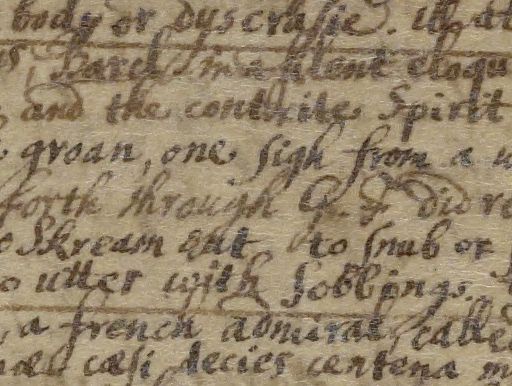 body or dyscrasie. ill at
is a silent eloqu
and the contrite Spirit
groan, one sigh from a w
forth through did re
Skream out to snub or
utter with Sobbings.
a french admiral, called
cæsi decies centena m